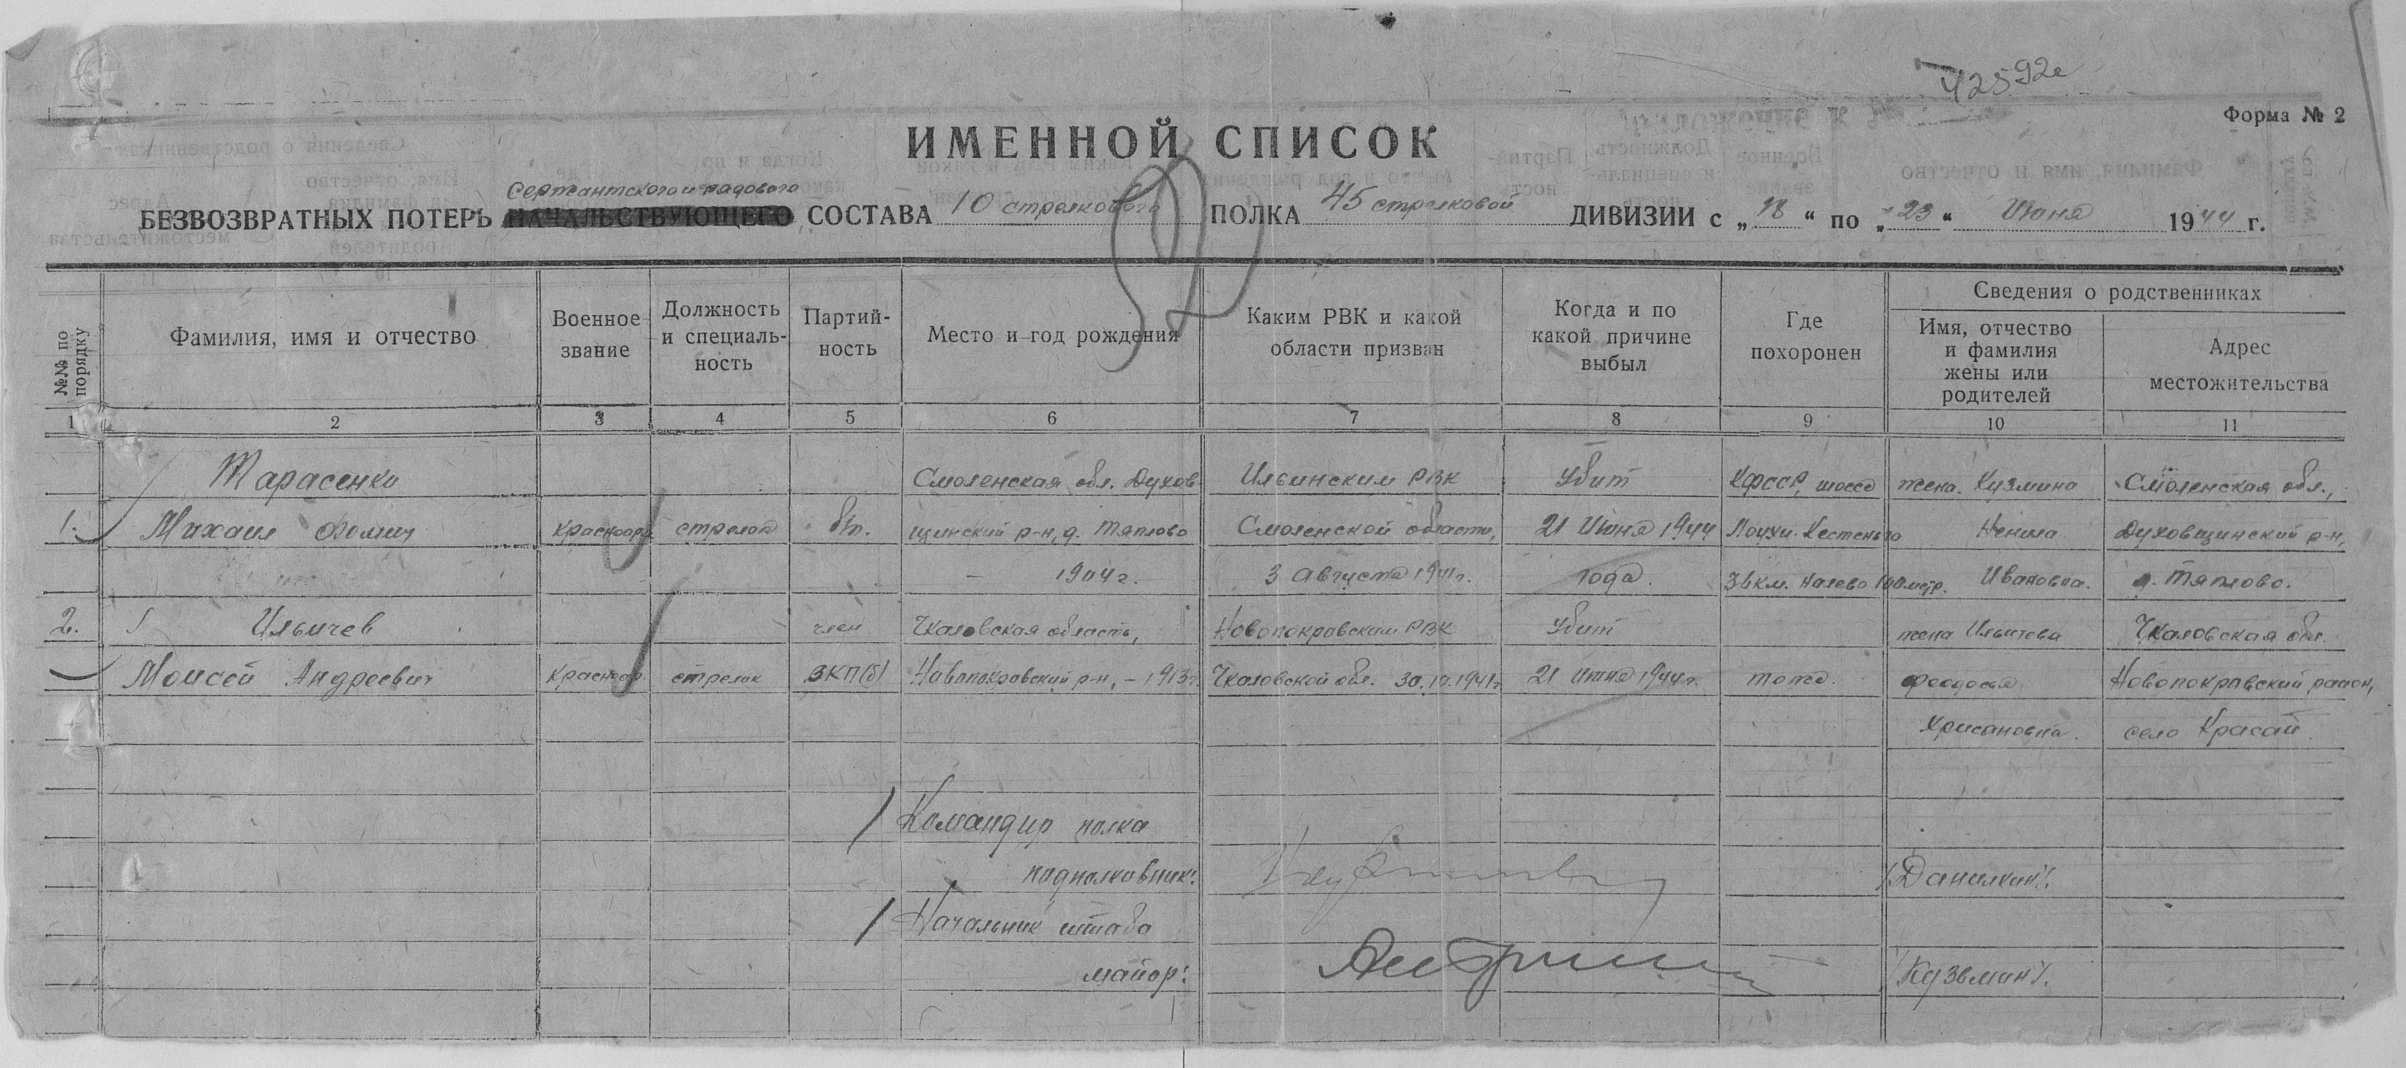 42592с
Форма № 2
ИМЕННОЙ СПИСОК
Сержантского и рядового
БЕЗВОЗВРАТНЫХ ПОТЕРЬ НАЧАЛЬСТВУЮЩЕГО СОСТАВА 10 стрелкового ПОЛКА 45 стрелковой ДИВИЗИИ с „18“ по „23“ Июня 1944 г.
№№ по порядку
Фамилия, имя и отчество
Военное звание
Должность и специаль-ность
Партий-ность
Место и год рождения
Каким РВК и какой области призван
Когда и по какой причине выбыл
Где похоронен
Сведения о родственниках
Имя, отчество и фамилия жены или родителей
Адрес местожительства
1 2 3 4 5 6 7 8 9 10 11
Тарасенко Смоленская обл. Духов Ильинским РВК Убит КФССР, шоссе жена. Кузмина Смоленская обл.,
1. Михаил Фомич красноар. стрелок б/п. щинский р-н, д. Тяплово Смоленской области, 21 Июня 1944 Лоухи-Кестеньга Ненила Духовщинский р-н,
1904 г. 3 Августа 1941г. года. км. налево Ивановна. д. Тяплово.
2. Ильичев член Чкаловская область, Новопокровским РВК Убит жена Ильичева Чкаловская обл.
Моисей Андреевич красноар. стрелок ВКП(б) Новопокровский р-н, - 1913г. Чкаловской обл. 30.10.1941г. 21 Июня 1944г. тоже. Феодосия Новопокровский район,
Хрисановна. село Красай
Командир полка
подполковник: /Данилкин/.
Начальник штаба
майор: /Кузьмин/.